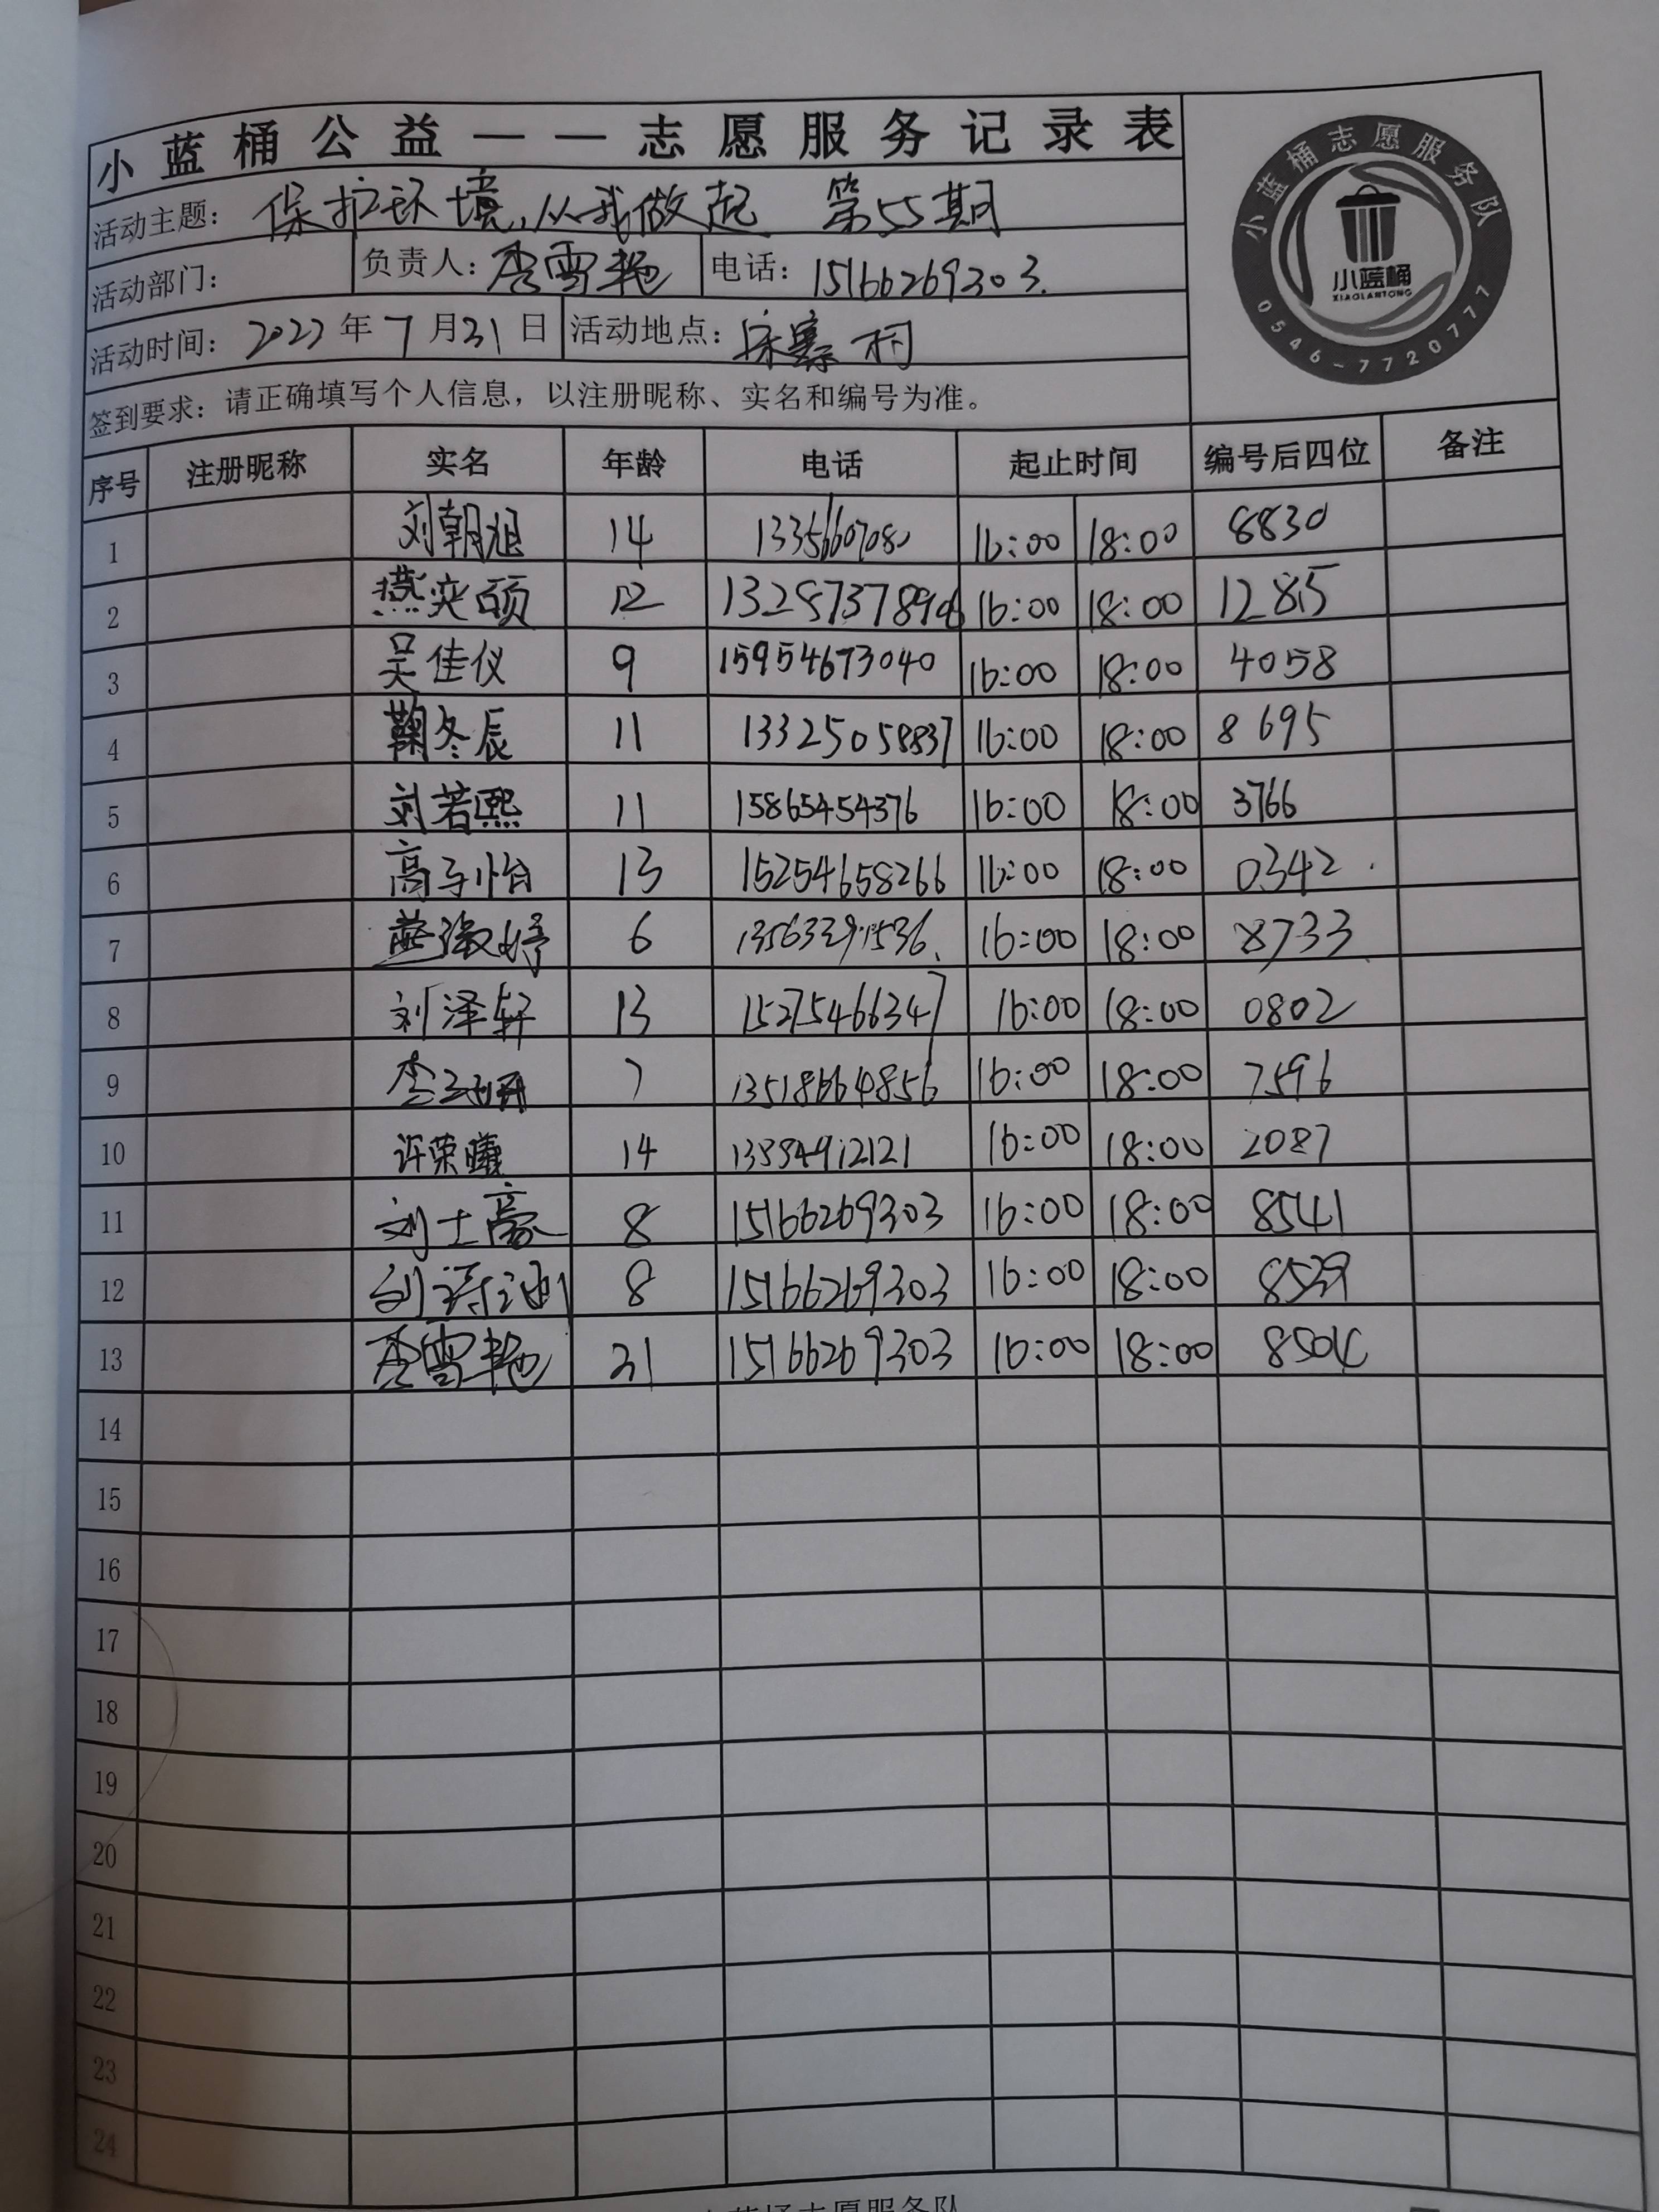 小蓝桶公益——志愿服务记录表
活动主题：保护环境,从我做起 第55期
活动部门： 负责人：李雪艳 电话：15166269303.
活动时间：2022年7月31日 活动地点：宋寨村
签到要求：请正确填写个人信息，以注册昵称、实名和编号为准。
小蓝桶志愿服务队
小蓝桶
XIAOLANTONG
0546-7720777
序号 注册昵称 实名 年龄 电话 起止时间 编号后四位 备注
1 刘朝旭 14 13356607080 16:00 18:00 8830
2 燕奕硕 12 16:00 18:00 1285
3 吴佳仪 9 15954673040 16:00 18:00 4058
4 鞠冬辰 11 13325058837 16:00 18:00 8695
5 刘若熙 11 15865454376 16:00 18:00 3766
6 高子怡 13 15254658266 16:00 18:00 0342
7 6 13563391536. 16:00 18:00 8733
8 刘泽轩 13 15275466347 16:00 18:00 0802
9 7 13518664856 16:00 18:00 7596
10 许荣曦 14 13884912121 16:00 18:00 2087
11 刘士豪 8 15166269303 16:00 18:00 8541
12 8 15166269303 16:00 18:00 8539
13 李雪艳 31 15166269303 16:00 18:00 8504
14
15
16
17
18
19
20
21
22
23
24
小蓝桶志愿服务队